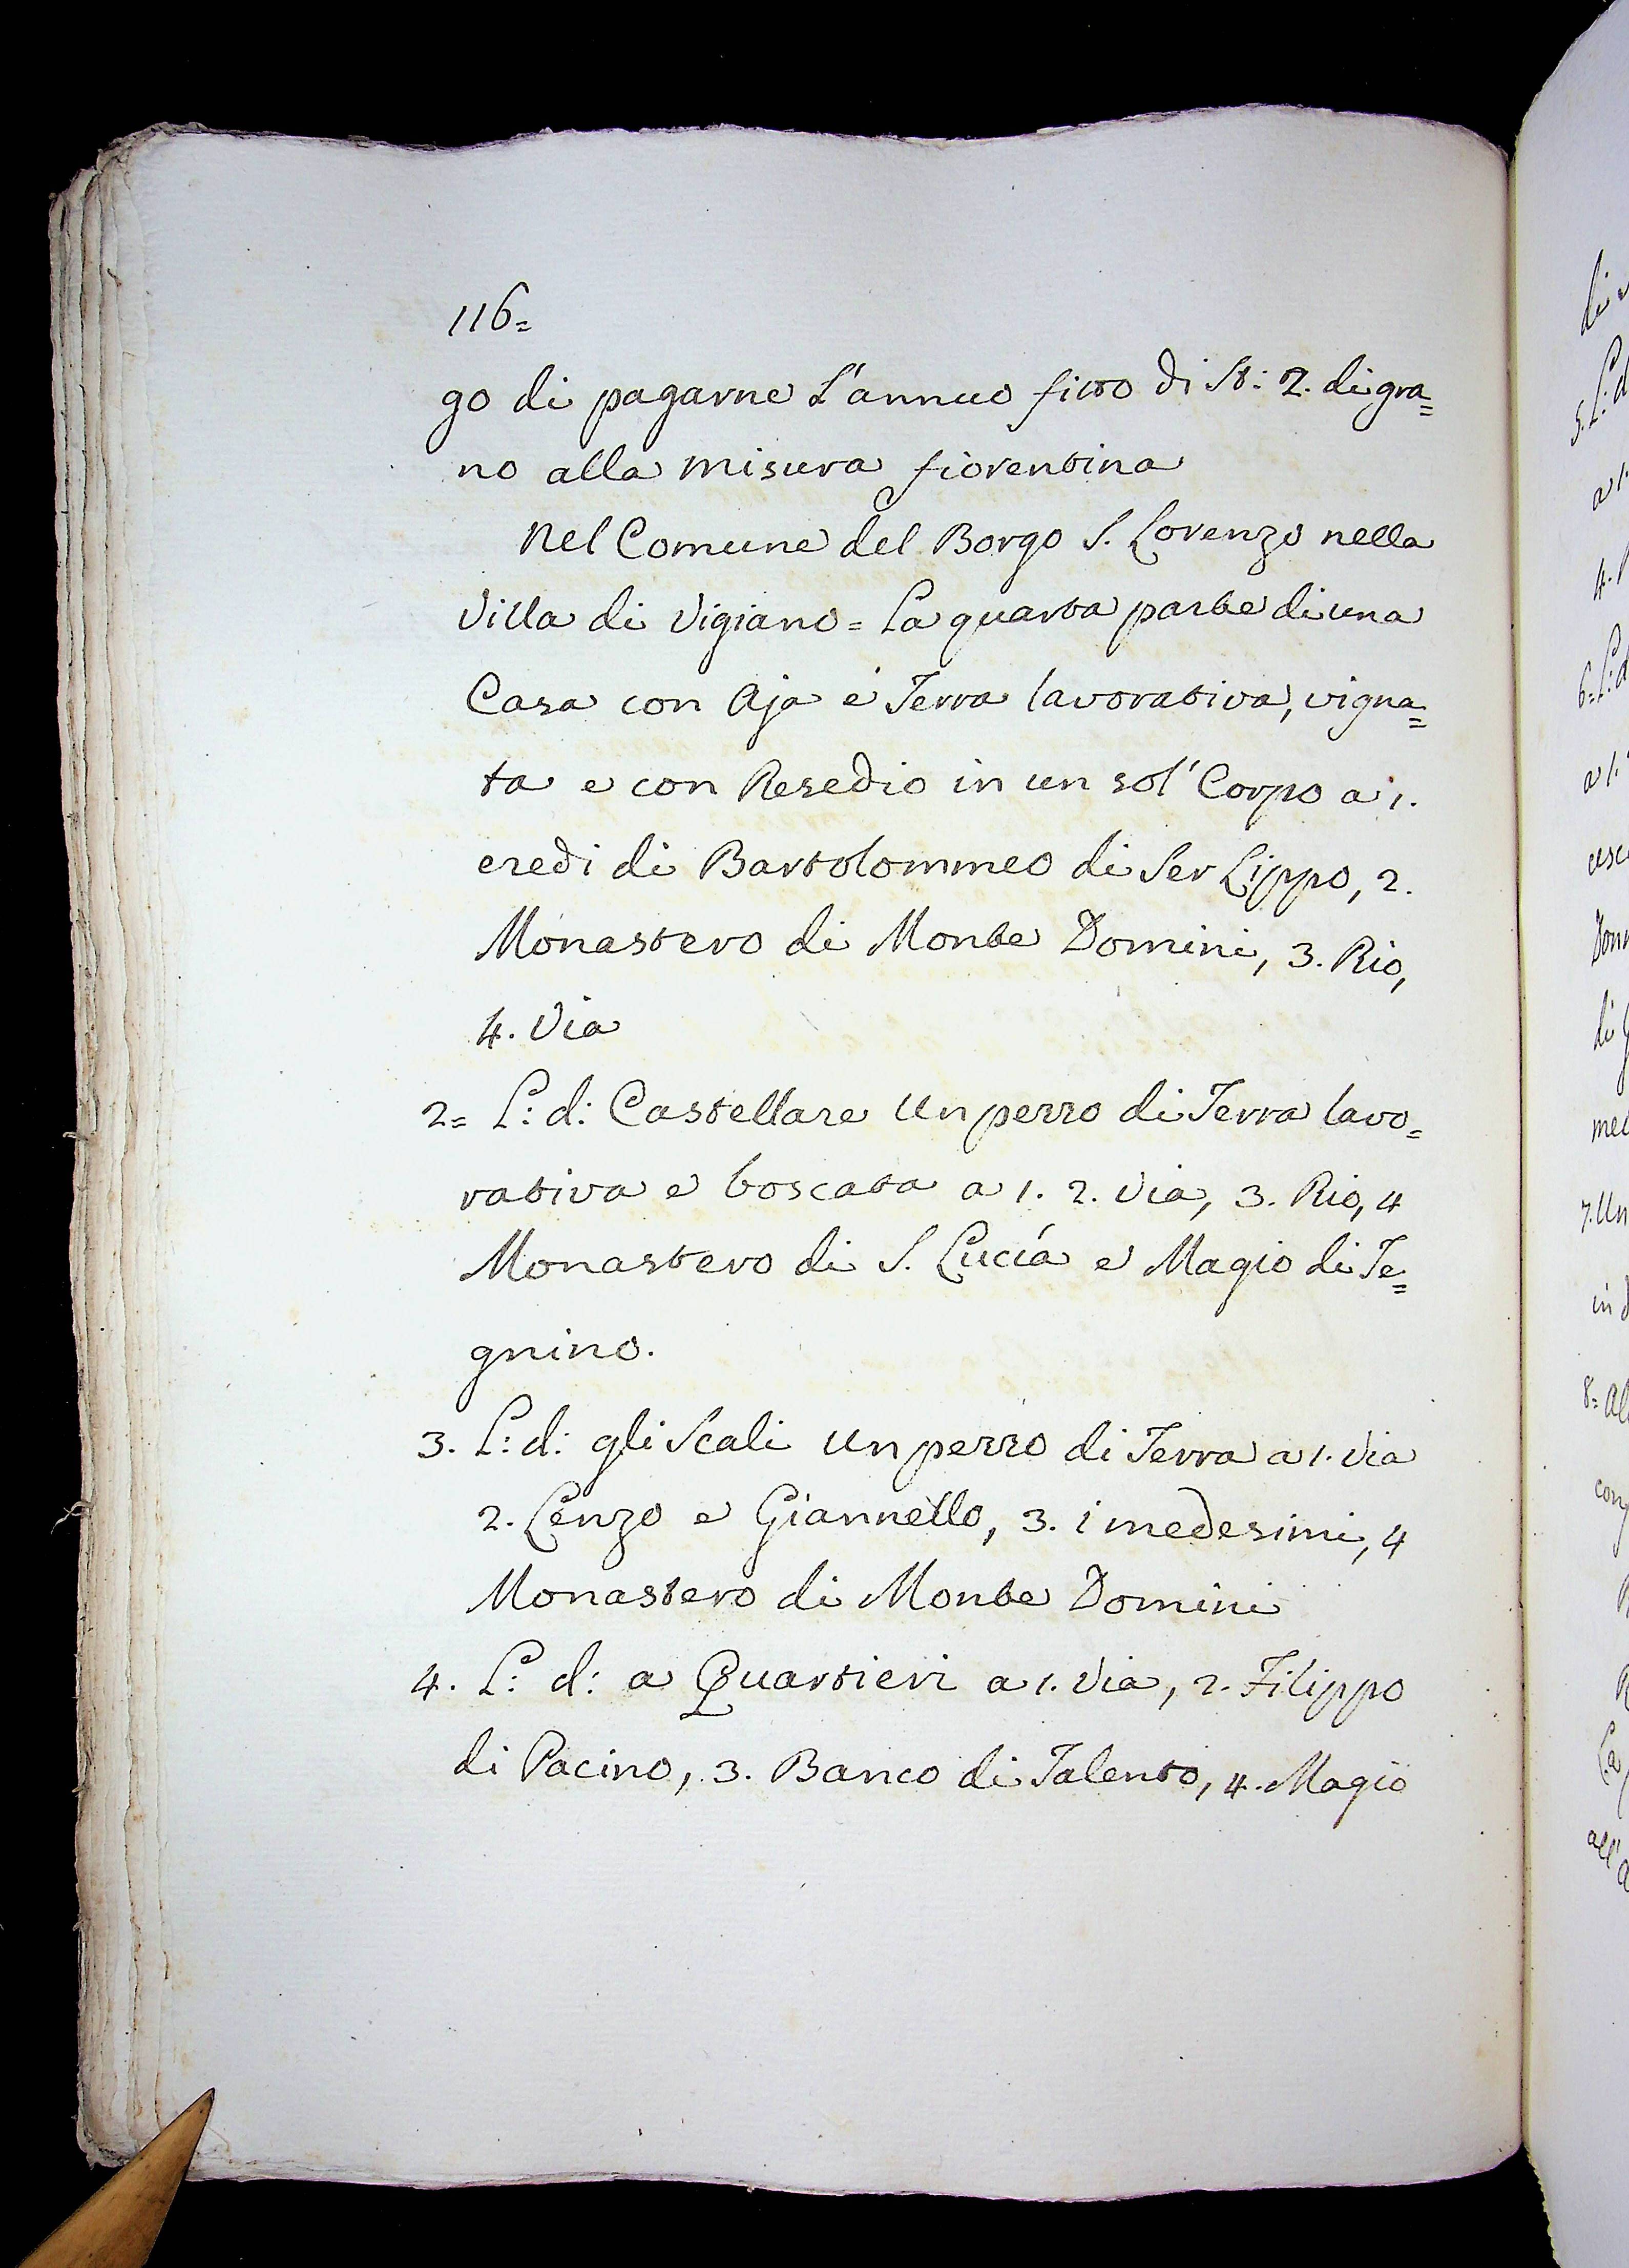 116=
go di pagarne L'annuo fitto di St: 2. di gra=
no alla misura fiorentina
Nel Comune del Borgo S. Lorenzo nella
Villa di Vigiano = La quarta parte di una
Casa con Aja e Terra lavorativa, vigna=
ta e con Resedio in un sol' Corpo a 1.
eredi di Bartolommeo di Ser Lippo, 2.
Monastero di Monte Domini, 3. Rio,
4. Via
2= L: d: Castellare Un pezzo di Terra lavo=
rativa e boscata a 1. 2. Via, 3. Rio, 4
Monastero di S. Lucía e Magio di Te=
gnino.
3. L: d: gli Scali Un pezzo di Terra a 1. Via
2. Cenzo e Giannello, 3. i medesimi, 4
Monastero di Monte Domini
4. L: d: a Quartieri a 1. Via, 2. Filippo
di Pacino, 3. Banco di Talento, 4. Magio